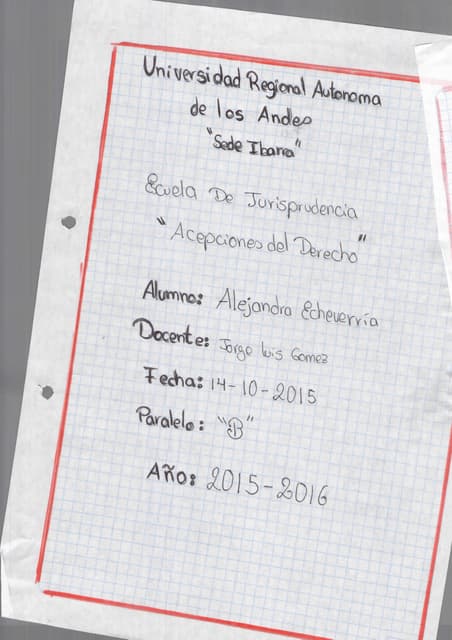 Universidad Regional Autonoma
de los Andes
"Sede Ibarra"
Escuela De Jurisprudencia
"Acepciones del Derecho"
Alumno: Alejandra Echeverría
Docente: Jorge Luis Gomez
Fecha: 14-10-2015
Paralelo: "B"
Año: 2015-2016